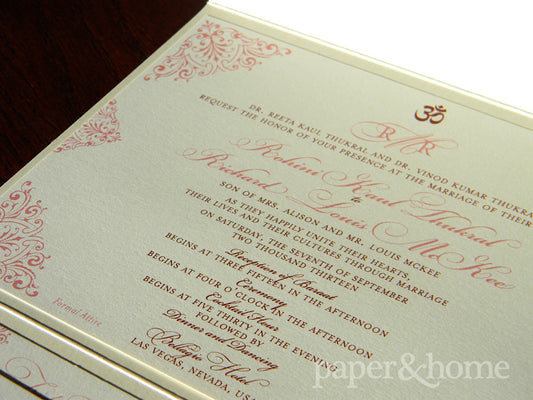 ॐ
R R
DR. REETA KAUL THUKRAL AND DR. VINOD KUMAR THUKRAL
REQUEST THE HONOR OF YOUR PRESENCE AT THE MARRIAGE OF THEIR
Rohini Kaul Thukral
to
Richard Louis McKee
SON OF MRS. ALISON AND MR. LOUIS MCKEE
AS THEY HAPPILY UNITE THEIR HEARTS,
THEIR LIVES AND THEIR CULTURES THROUGH MARRIAGE
ON SATURDAY, THE SEVENTH OF SEPTEMBER
TWO THOUSAND THIRTEEN
Reception of Baraat
BEGINS AT THREE FIFTEEN IN THE AFTERNOON
Ceremony
BEGINS AT FOUR O CLOCK IN THE AFTERNOON
Cocktail Hour
BEGINS AT FIVE THIRTY IN THE EVENING
FOLLOWED BY
Dinner and Dancing
Bellagio Hotel
LAS VEGAS, NEVADA, USA
Formal Attire
paper&home